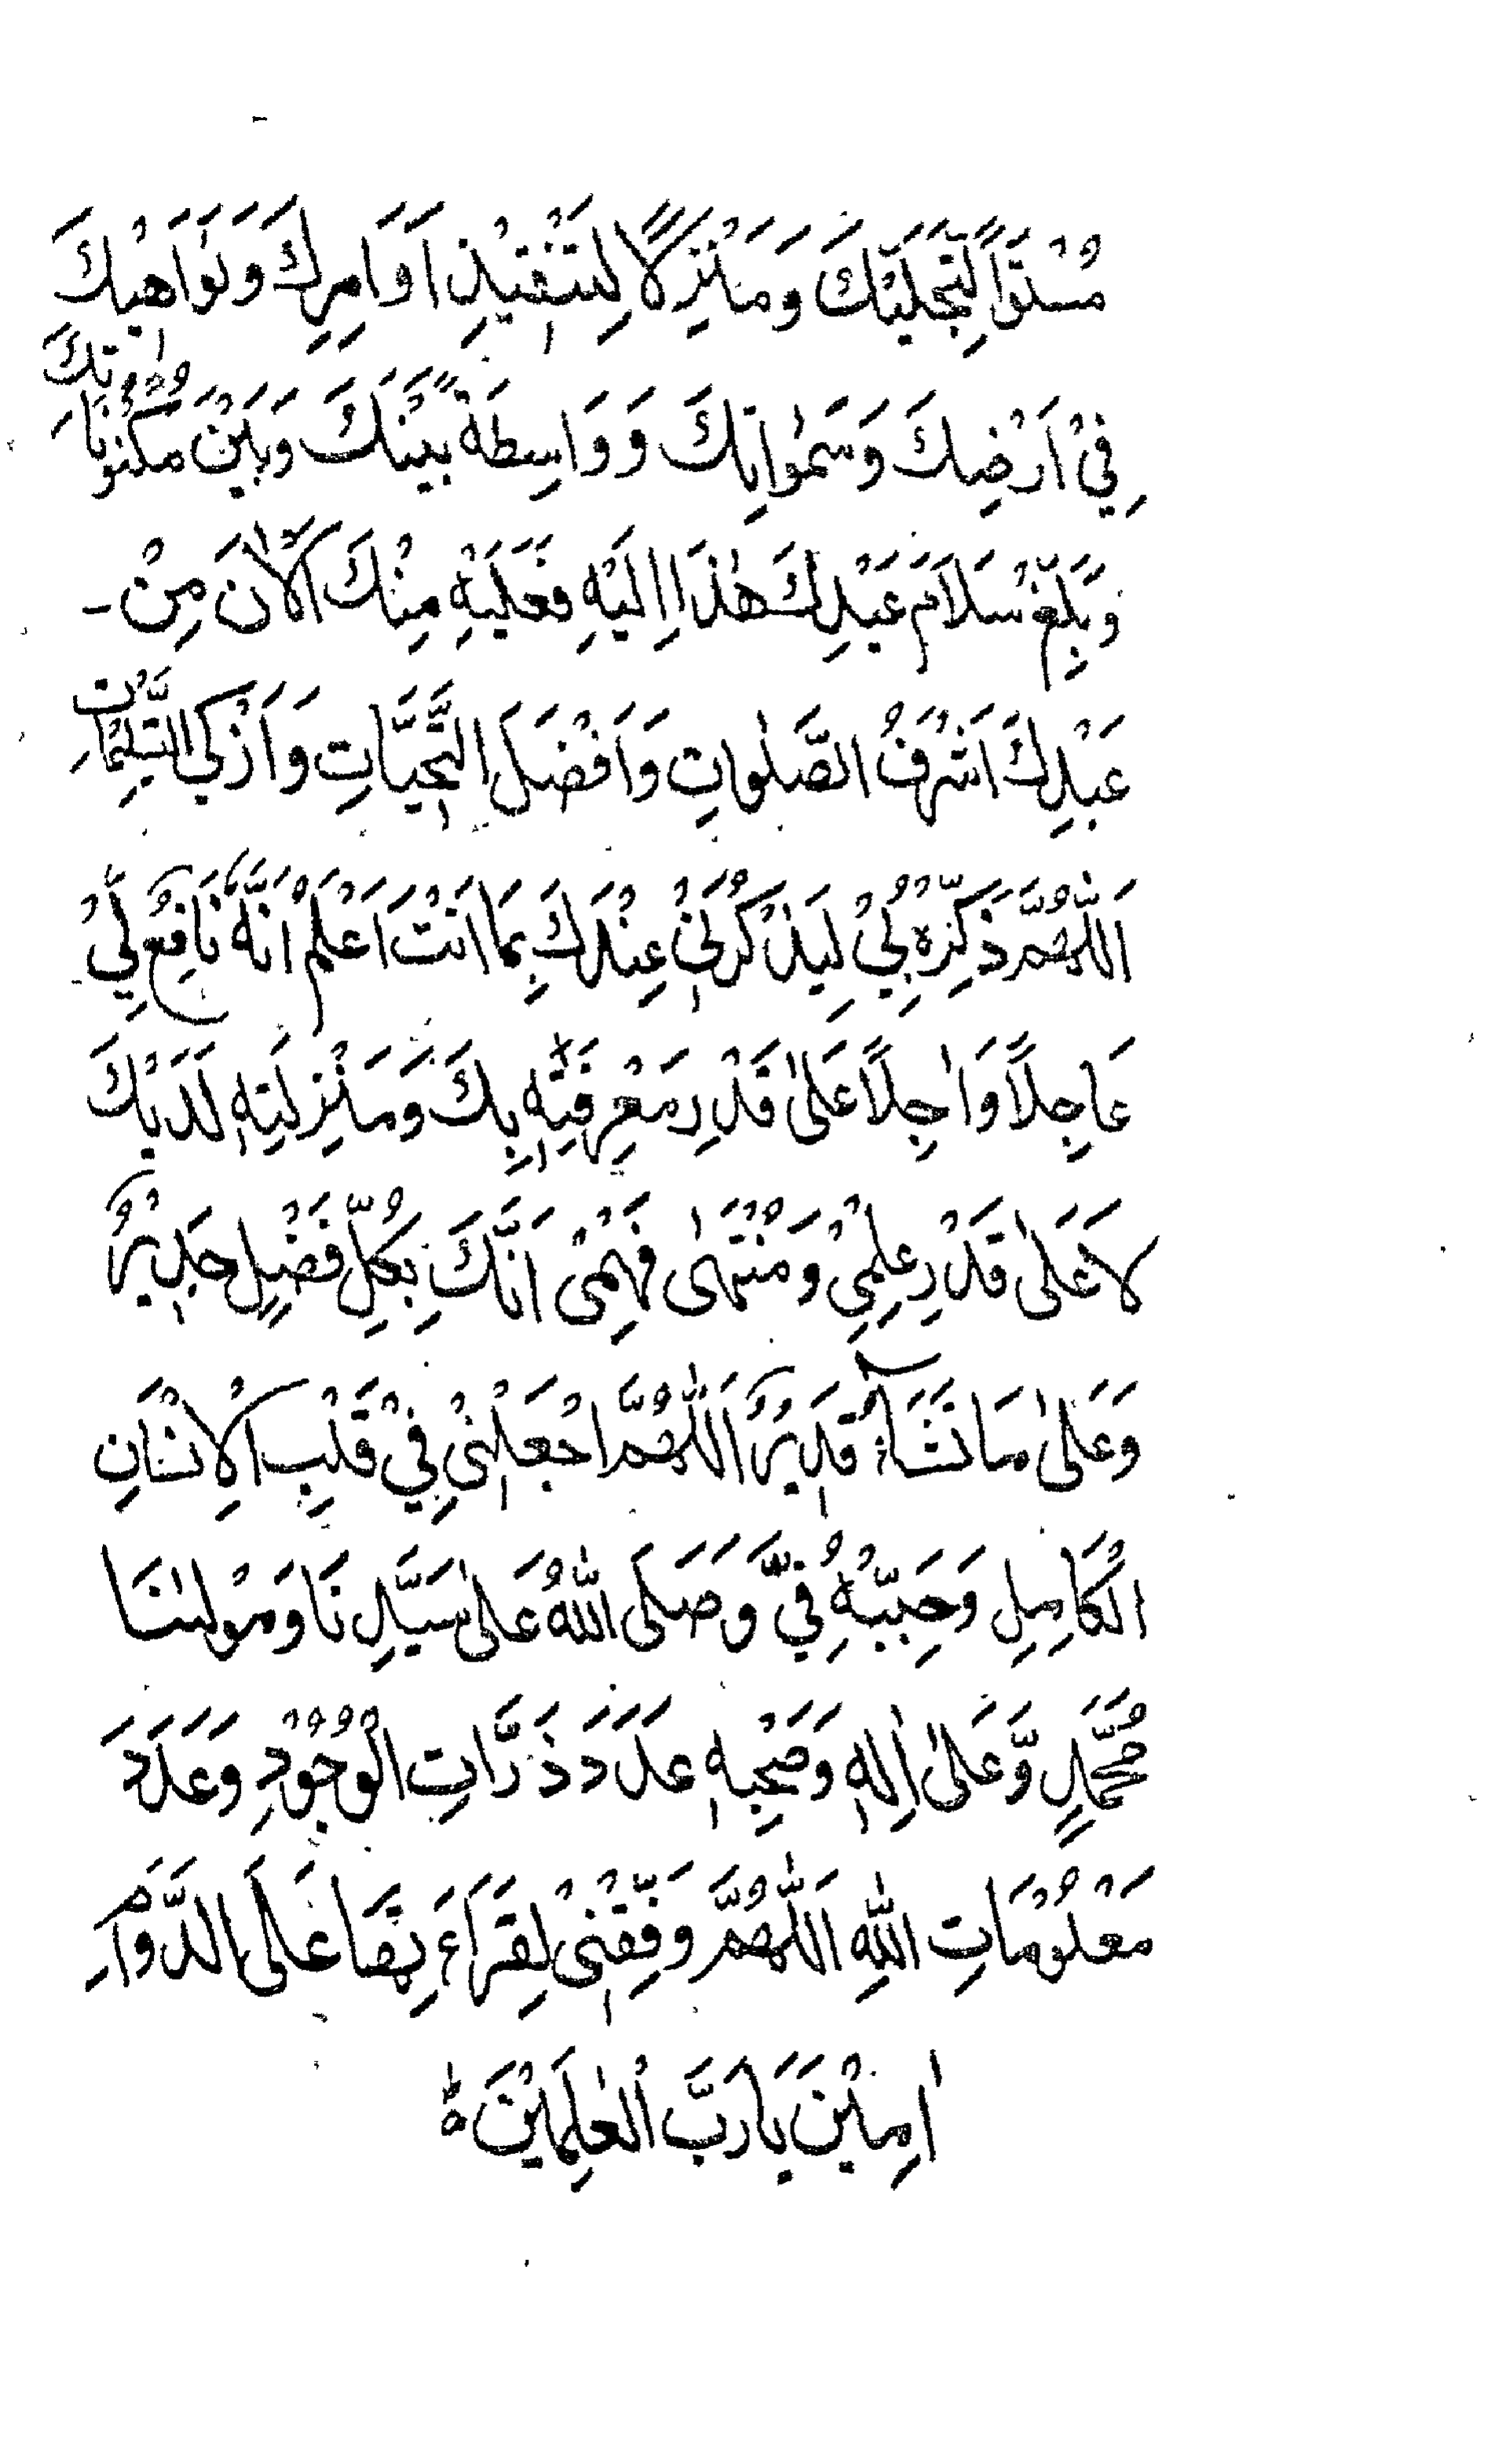 مُسْتَوًا لِّتَجَلِّيَتِكَ وَمَنْزِلًا لِتَنْفِيْذِ اَوَامِرِكَ وَنَوَاهِيْكَ
فِيْ اَرْضِكَ وَسَمٰوَاتِكَ وَوَاسِطَةً بَيْنَكَ وَبَيْنَ مُكَوَّنَاتِكَ
وَبَلِّغْ سَلَامَ عَبْدِكَ هٰذَا اِلَيْهِ فَعَلَيْهِ مِنْكَ الْاٰنَ مِنْ -
عَبْدِكَ اَشْرَفُ الصَّلٰوَاتِ وَاَفْضَلَ التَّحِيَّاتِ وَاَزْكَى التَّسْلِيْمَاتِ
اَللّٰهُمَّ ذَكِّرْهُ بِيْ لِيَذْكُرَنِيْ عِنْدَكَ بِمَا اَنْتَ اَعْلَمُ اَنَّهٗ نَافِعٌ لِّيْ
عَاجِلًا وَاٰجِلًا عَلٰى قَدْرِ مَعْرِفَتِهٖ بِكَ وَمَنْزِلَتِهٖ لَدَيْكَ
لَا عَلٰى قَدْرِ عِلْمِيْ وَمُنْتَهٰى فَهْمِىْ اَنَّكَ بِكُلِّ فَضْلٍ جَدِيْرٌ
وَعَلٰى مَا تَشَآءُ قَدِيْرٌ اَللّٰهُمَّ اجْعَلْنِىْ فِيْ قَلْبِ الْاِنْسَانِ
الْكَامِلِ وَحَبِّبْهُ فِيَّ وَصَلَى اللّٰهُ عَلٰى سَيِّدِنَا وَمَوْلٰنَا
مُحَمَّدٍ وَّعَلٰى اٰلِهٖ وَصَحْبِهٖ عَدَدَ ذَرَّاتِ الْوُجُوْدِ وَعَدَدَ
مَعْلُوْمَاتِ اللّٰهِ اَللّٰهُمَّ وَفِّقْنِىْ لِقِرَاءَتِهَا عَلَى الدَّوَامِ
اٰمِيْنَ يَارَبَّ الْعٰلَمِيْنَ ؕ